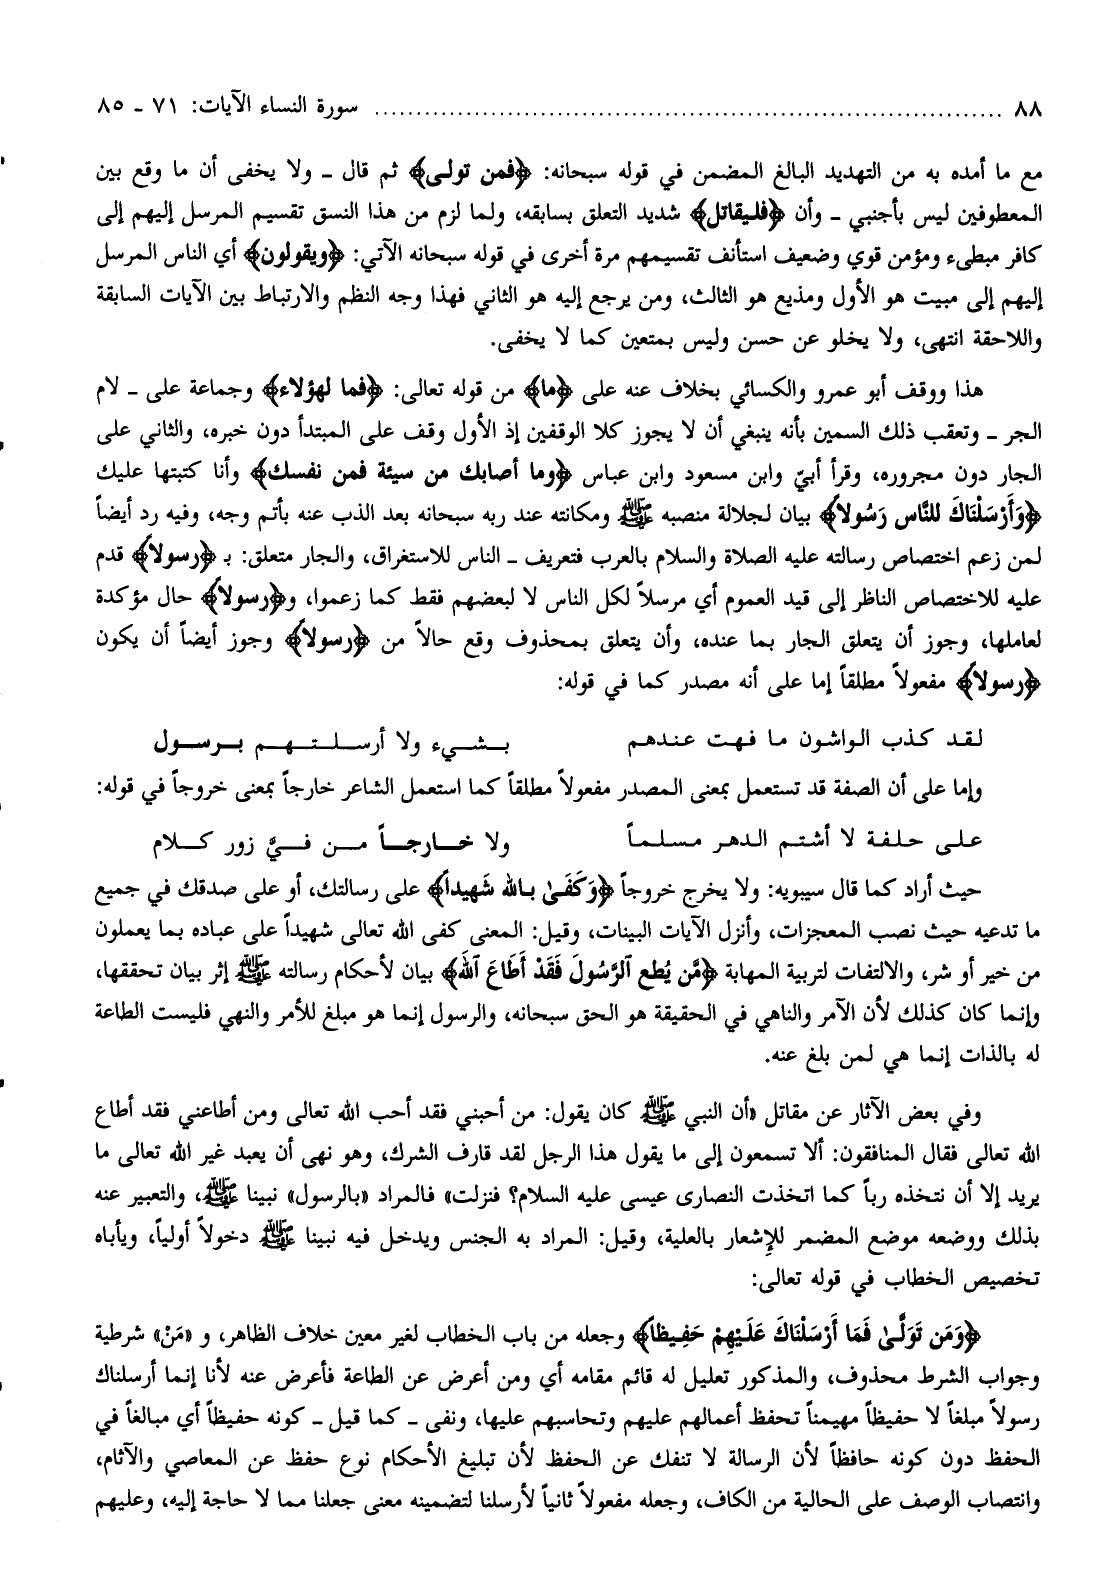 ٨٨ ........ سورة النساء الآيات: ٧١ ـ ٨٥
مع ما أمده به من التهديد البالغ المضمن في قوله سبحانه: ﴿فمن تولى﴾ ثم قال ـ ولا يخفى أن ما وقع بين
المعطوفين ليس بأجنبي ـ وأن ﴿فليقاتل﴾ شديد التعلق بسابقه، ولما لزم من هذا النسق تقسيم المرسل إليهم إلى
كافر مبطىء ومؤمن قوي وضعيف استأنف تقسيمهم مرة أخرى في قوله سبحانه الآتي: ﴿ويقولون﴾ أي الناس المرسل
إليهم إلى مبيت هو الأول ومذيع هو الثالث، ومن يرجع إليه هو الثاني فهذا وجه النظم والارتباط بين الآيات السابقة
واللاحقة انتهى، ولا يخلو عن حسن وليس بمتعين كما لا يخفى.
هذا ووقف أبو عمرو والكسائي بخلاف عنه على ﴿ما﴾ من قوله تعالى: ﴿فما لهؤلاء﴾ وجماعة على ـ لام
الجر ـ وتعقب ذلك السمين بأنه ينبغي أن لا يجوز كلا الوقفين إذ الأول وقف على المبتدأ دون خبره، والثاني على
الجار دون مجروره، وقرأ أبيّ وابن مسعود وابن عباس ﴿وما أصابك من سيئة فمن نفسك﴾ وأنا كتبتها عليك
﴿وَأَرْسَلْنَاكَ للنَّاس رَسُولاً﴾ بيان لجلالة منصبه ﷺ ومكانته عند ربه سبحانه بعد الذب عنه بأتم وجه، وفيه رد أيضاً
لمن زعم اختصاص رسالته عليه الصلاة والسلام بالعرب فتعريف ـ الناس للاستغراق، والجار متعلق: بـ ﴿رسولاً﴾ قدم
عليه للاختصاص الناظر إلى قيد العموم أي مرسلاً لكل الناس لا لبعضهم فقط كما زعموا، و﴿رسولاً﴾ حال مؤكدة
لعاملها، وجوز أن يتعلق الجار بما عنده، وأن يتعلق بمحذوف وقع حالاً من ﴿رسولاً﴾ وجوز أيضاً أن يكون
﴿رسولاً﴾ مفعولاً مطلقاً إما على أنه مصدر كما في قوله:
لقد كذب الواشون ما فهت عندهم بشيء ولا أرسلتهم برسول
وإما على أن الصفة قد تستعمل بمعنى المصدر مفعولاً مطلقاً كما استعمل الشاعر خارجاً بمعنى خروجاً في قوله:
على حلفة لا أشتم الدهر مسلماً ولا خارجاً من فيَّ زور كلام
حيث أراد كما قال سيبويه: ولا يخرج خروجاً ﴿وَكَفَىٰ بالله شَهيداً﴾ على رسالتك، أو على صدقك في جميع
ما تدعيه حيث نصب المعجزات، وأنزل الآيات البينات، وقيل: المعنى كفى الله تعالى شهيداً على عباده بما يعملون
من خير أو شر، والالتفات لتربية المهابة ﴿مَّن يُطع ٱلرَّسُولَ فَقَدْ أَطَاعَ ٱللهَ﴾ بيان لأحكام رسالته ﷺ إثر بيان تحققها،
وإنما كان كذلك لأن الآمر والناهي في الحقيقة هو الحق سبحانه، والرسول إنما هو مبلغ للأمر والنهي فليست الطاعة
له بالذات إنما هي لمن بلغ عنه.
وفي بعض الآثار عن مقاتل «أن النبي ﷺ كان يقول: من أحبني فقد أحب الله تعالى ومن أطاعني فقد أطاع
الله تعالى فقال المنافقون: ألا تسمعون إلى ما يقول هذا الرجل لقد قارف الشرك، وهو نهى أن يعبد غير الله تعالى ما
يريد إلا أن نتخذه رباً كما اتخذت النصارى عيسى عليه السلام؟ فنزلت» فالمراد «بالرسول» نبينا ﷺ، والتعبير عنه
بذلك ووضعه موضع المضمر للإِشعار بالعلية، وقيل: المراد به الجنس ويدخل فيه نبينا ﷺ دخولاً أولياً، ويأباه
تخصيص الخطاب في قوله تعالى:
﴿وَمَن تَوَلَّىٰ فَمَا أَرْسَلْنَاكَ عَلَيْهِمْ حَفيظاً﴾ وجعله من باب الخطاب لغير معين خلاف الظاهر، و «مَنْ» شرطية
وجواب الشرط محذوف، والمذكور تعليل له قائم مقامه أي ومن أعرض عن الطاعة فأعرض عنه لأنا إنما أرسلناك
رسولاً مبلغاً لا حفيظاً مهيمناً تحفظ أعمالهم عليهم وتحاسبهم عليها، ونفى ـ كما قيل ـ كونه حفيظاً أي مبالغاً في
الحفظ دون كونه حافظاً لأن الرسالة لا تنفك عن الحفظ لأن تبليغ الأحكام نوع حفظ عن المعاصي والآثام،
وانتصاب الوصف على الحالية من الكاف، وجعله مفعولاً ثانياً لأرسلنا لتضمينه معنى جعلنا مما لا حاجة إليه، وعليهم